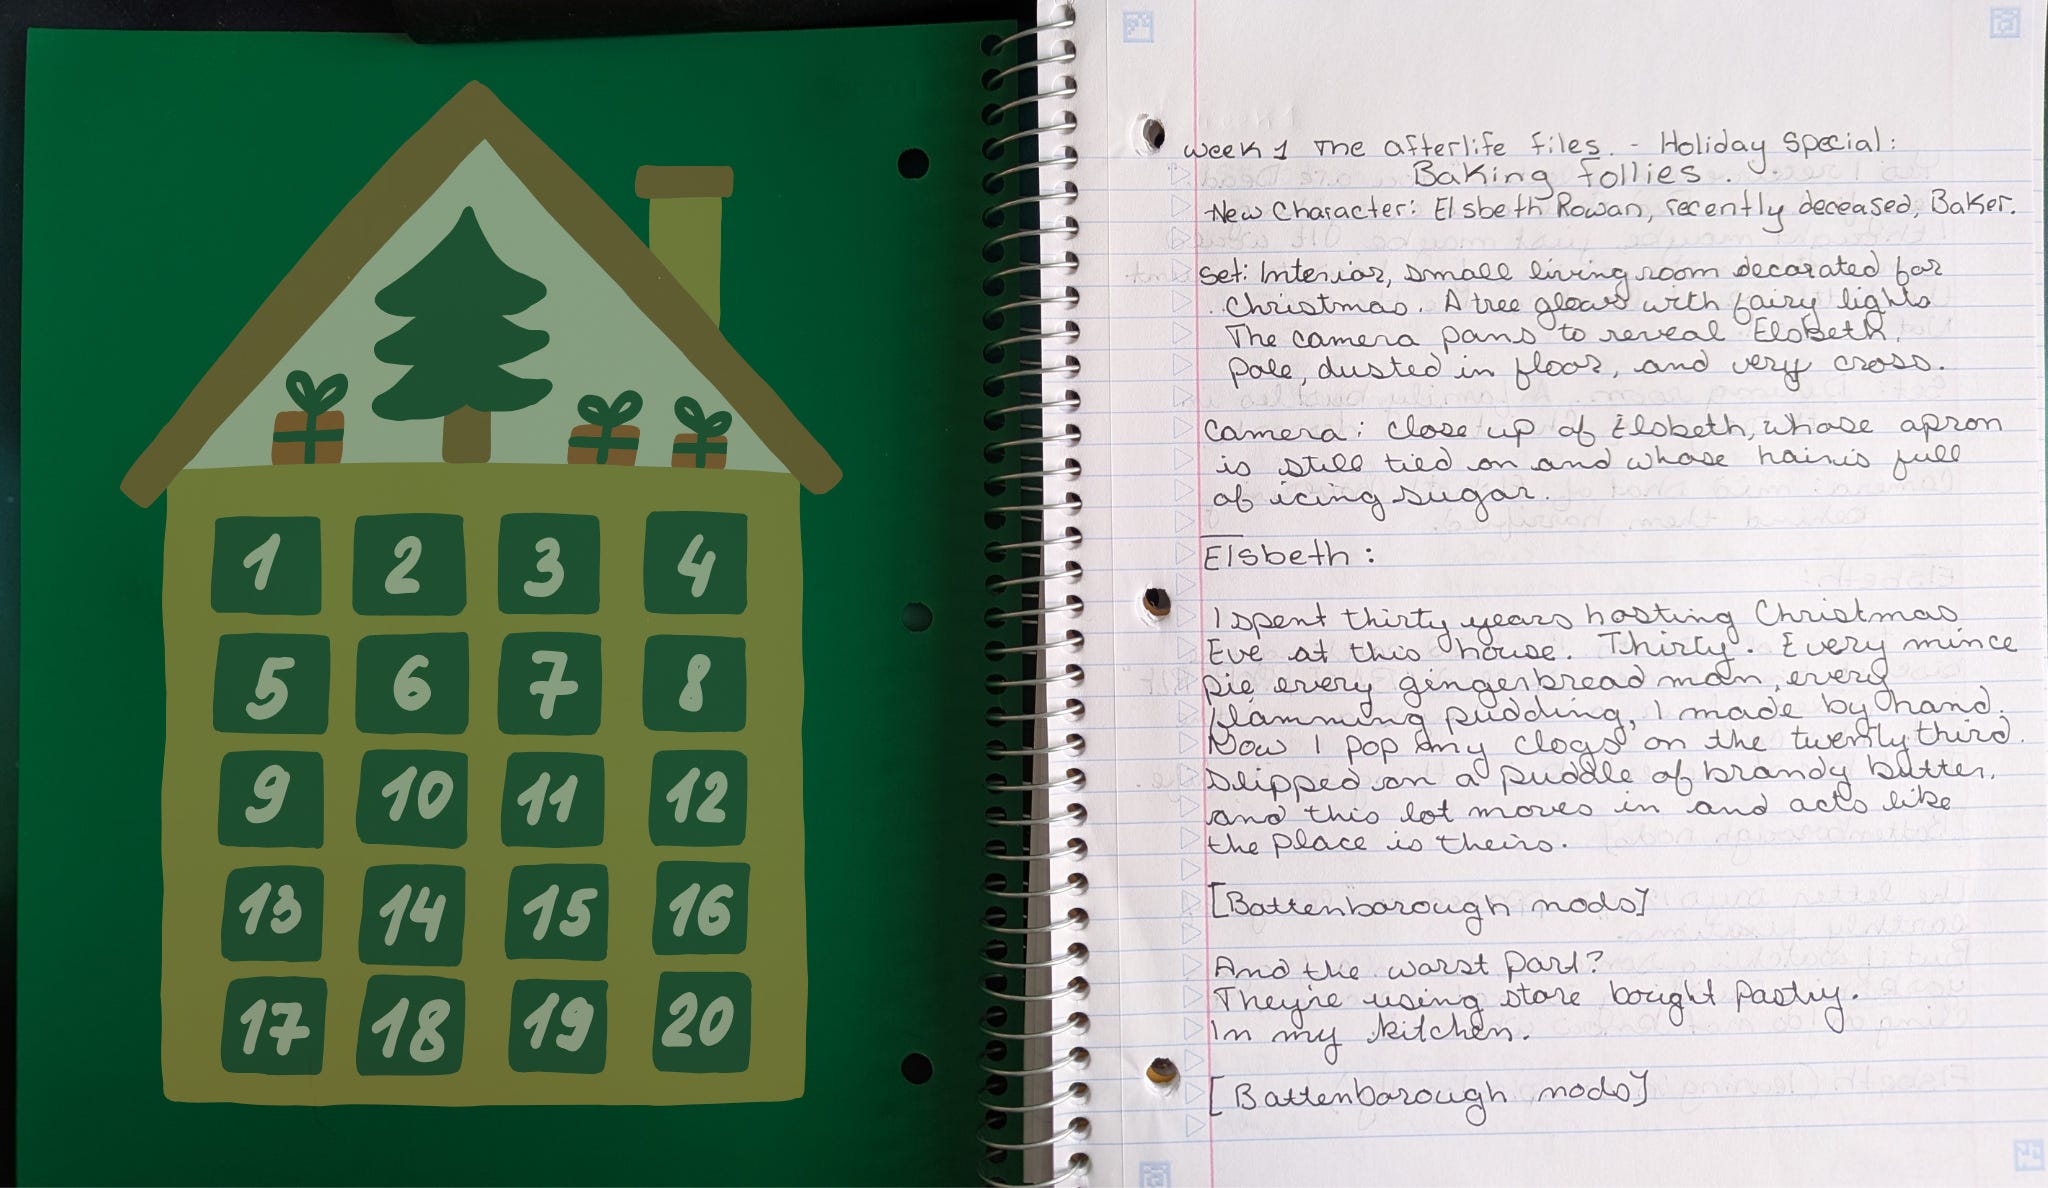 1 2 3 4
5 6 7 8
9 10 11 12
13 14 15 16
17 18 19 20
Week 1 The afterlife files. - Holiday Special:
Baking follies.
New Character: Elsbeth Rowan, recently deceased, Baker.
Set: Interior, small living room decorated for
Christmas. A tree glows with fairy lights
The camera pans to reveal Elsbeth.
Pale, dusted in floor, and very cross.
Camera: close up of Elsbeth, whose apron
is still tied on and whose hair is full
of icing sugar.
Elsbeth:
I spent thirty years hosting Christmas
Eve at this house. Thirty. Every mince
pie every gingerbread man, every
flamming pudding, I made by hand.
Now I pop my clogs on the twenty third.
slipped on a puddle of brandy butter,
and this lot moves in and acts like
the place is theirs.
[Battenborough nods]
And the worst part?
They're using store bought pastry.
In my kitchen.
[Battenborough nods]